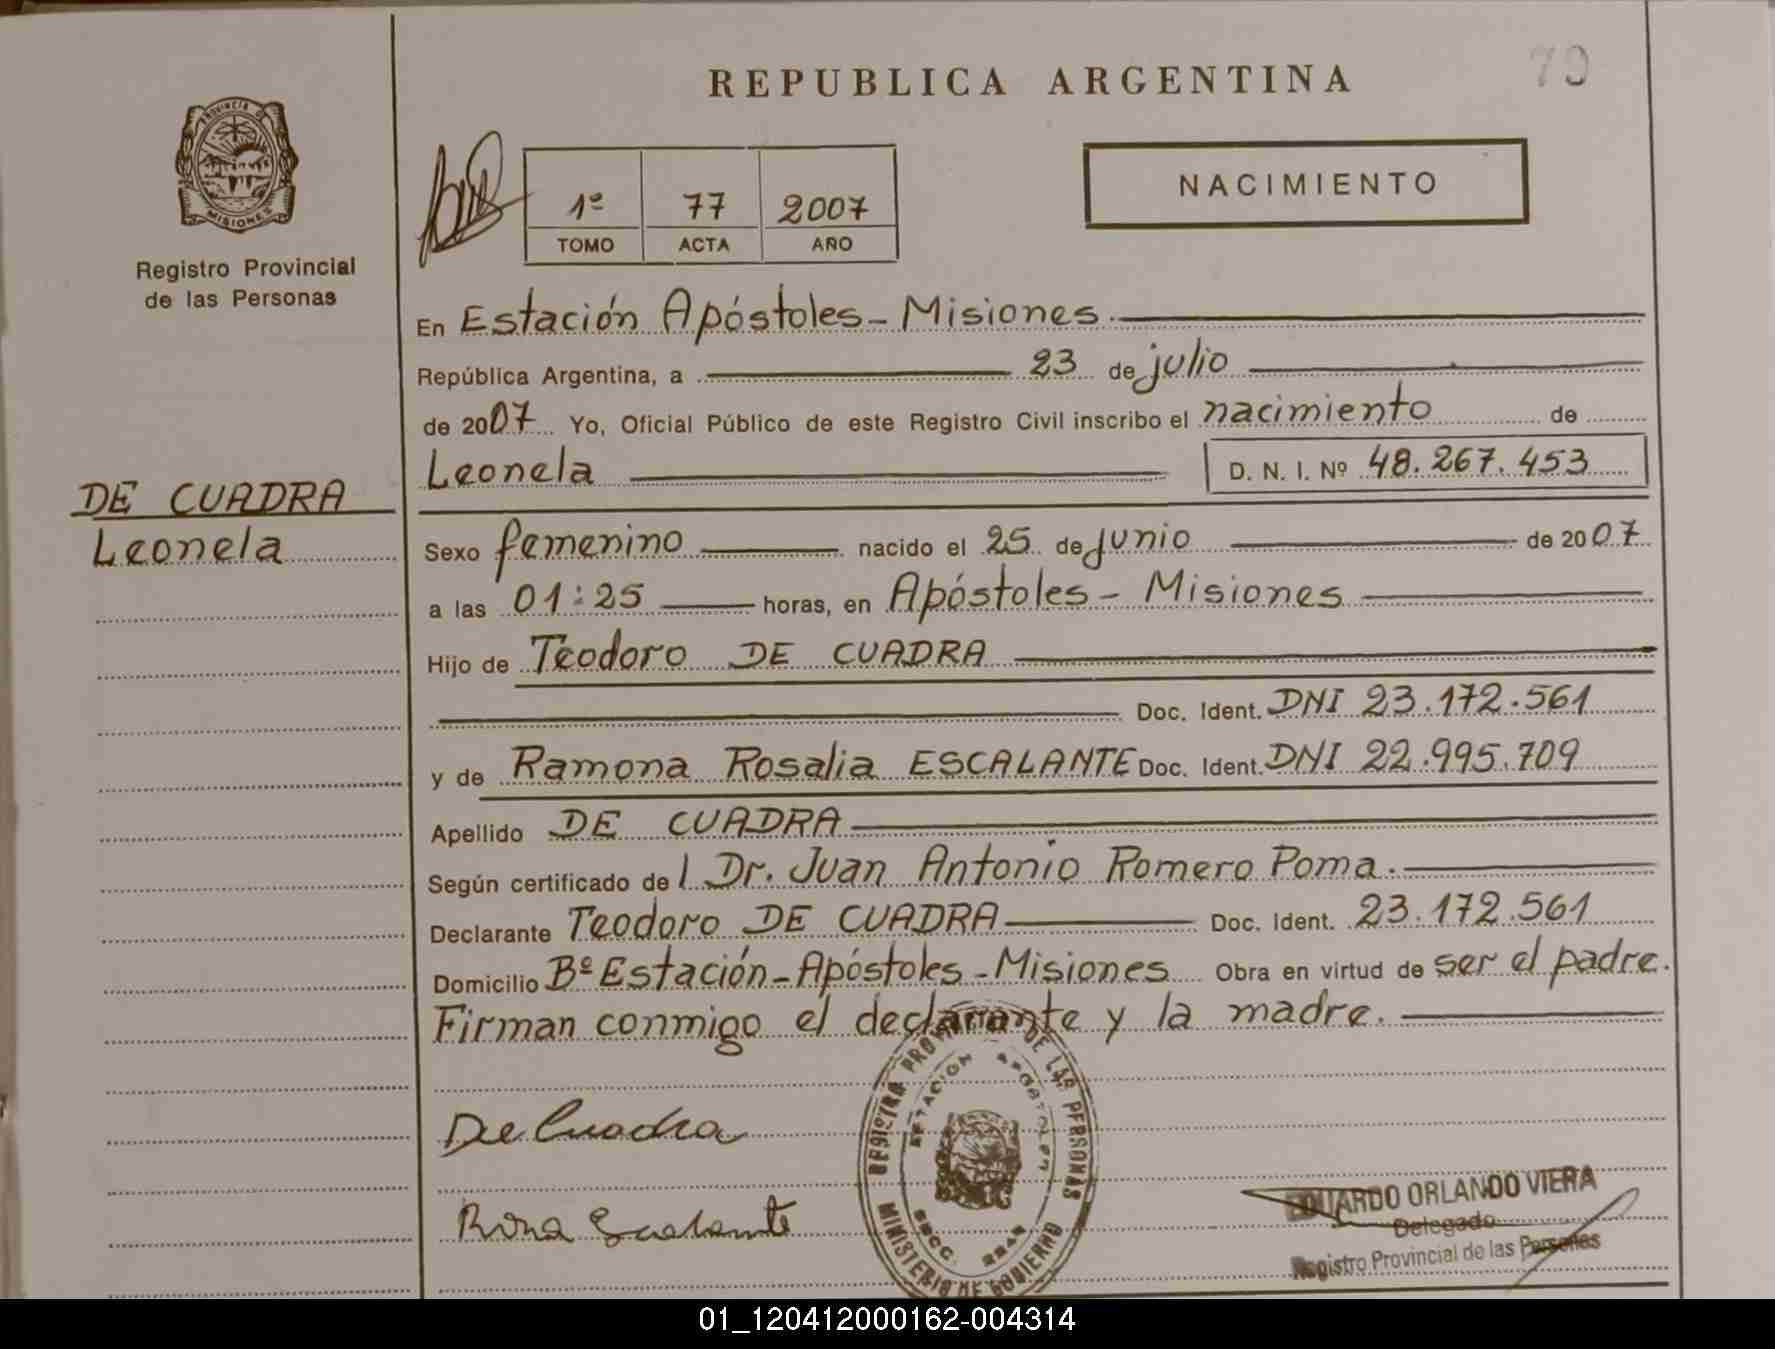 REPUBLICA ARGENTINA
79
PROVINCIA DE
MISIONES
Registro Provincial
de las Personas
1º 77 2007
TOMO ACTA AÑO
NACIMIENTO
En Estación Apóstoles - Misiones.
República Argentina, a 23 de julio
de 2007 Yo, Oficial Público de este Registro Civil inscribo el nacimiento de
Leonela D. N. I. Nº 48.267.453
DE CUADRA
Leonela
Sexo femenino nacido el 25 de junio de 2007
a las 01:25 horas, en Apóstoles - Misiones
Hijo de Teodoro DE CUADRA
Doc. Ident. DNI 23.172.561
y de Ramona Rosalia ESCALANTE Doc. Ident. DNI 22.995.709
Apellido DE CUADRA
Según certificado de l Dr. Juan Antonio Romero Poma.
Declarante Teodoro DE CUADRA Doc. Ident. 23.172.561
Domicilio Bº Estación - Apóstoles - Misiones Obra en virtud de ser el padre.
Firman conmigo el declarante y la madre.
De Cuadra
Escalante
REGISTRO PROV. DE LAS PERSONAS
ESTACION APOSTOLES
SECC.
MINISTERIO DE GOBIERNO
EDUARDO ORLANDO VIERA
Delegado
Registro Provincial de las Personas
01_120412000162-004314